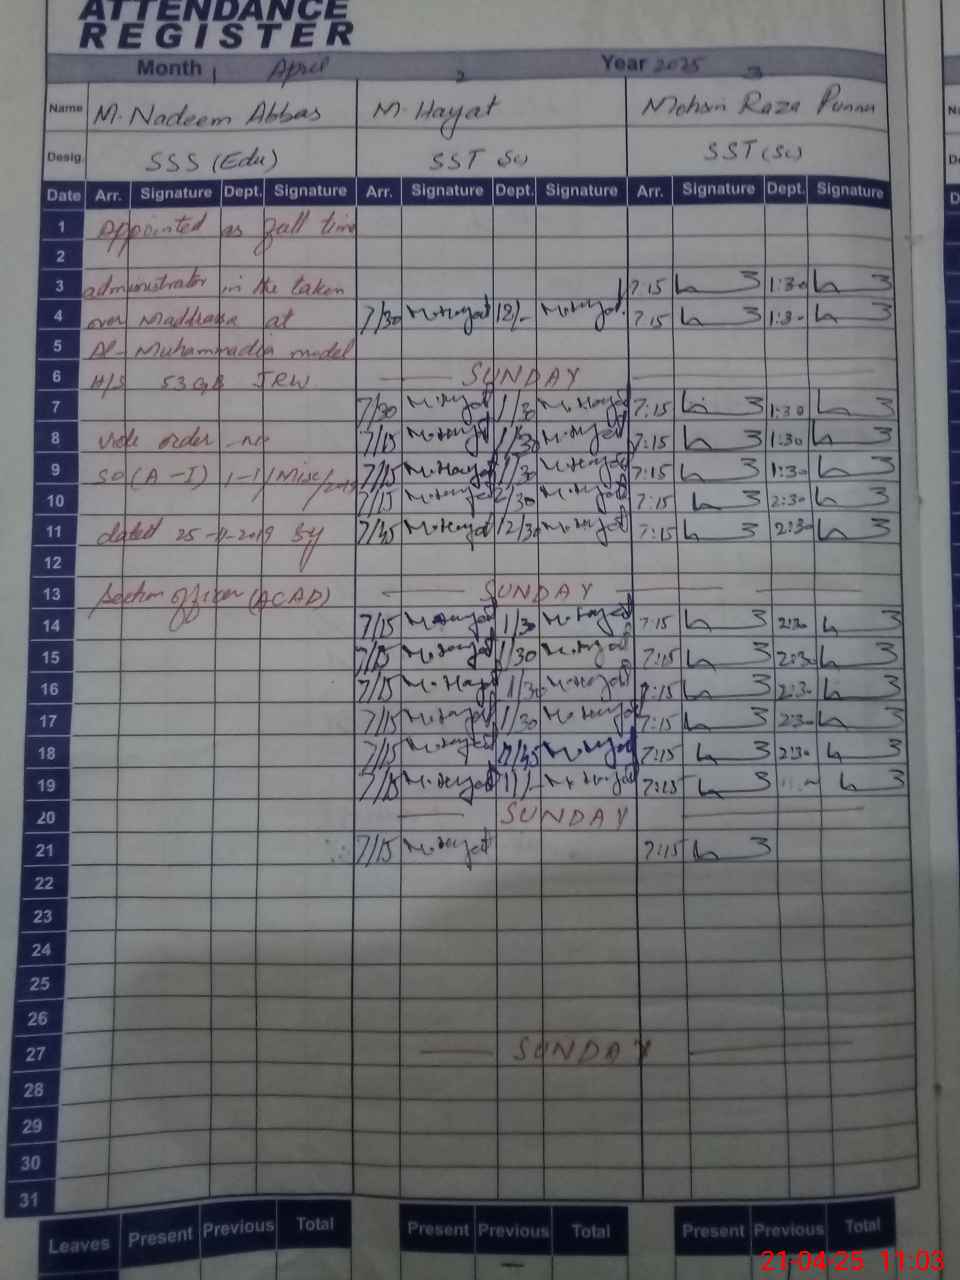 ATTENDANCE
REGISTER
Month 1 April 2 Year 2025 3
Name M. Nadeem Abbas M. Hayat Mohsin Raza Punnu
Desig. SSS (Edu) SST Sc) SST (Sc)
Date Arr. Signature Dept. Signature Arr. Signature Dept. Signature Arr. Signature Dept. Signature
1 Appointed as full time
2
3 administrator in the taken 7:15 1:30
4 over Maddrassa at 7/30 M.Hayat 12/- M.Hayat 7:15 1:30
5 Al- Muhammadia model
6 H/S 53 GB JRW. SUNDAY
7 7/30 M.Hayat 1/30 M.Hayat 7:15 1:30
8 vide order no 7/15 M.Hayat 1/30 M.Hayat 7:15 1:30
9 SO (A-I) 1-1/Misc/2019 7/15 M.Hayat 1/30 M.Hayat 7:15 1:30
10 7/15 M.Hayat 2/30 M.Hayat 7:15 2:30
11 dated 25-11-2019 By 7/45 M.Hayat 12/30 M.Hayat 7:15 2:30
12
13 Section officer (ACAD) SUNDAY
14 7/15 M.Hayat 1/30 M.Hayat 7:15 2:30
15 7/15 M.Hayat 1/30 M.Hayat 7:15 2:30
16 7/15 M.Hayat 1/30 M.Hayat 7:15 2:30
17 7/15 M.Hayat 1/30 M.Hayat 7:15 2:30
18 7/15 M.Hayat M.Hayat 7:15 2:30
19 7/15 M.Hayat 11/- M.Hayat 7:15
20 SUNDAY
21 7/15 M.Hayat 7:15
22
23
24
25
26
27 SUNDAY
28
29
30
31
Leaves Present Previous Total Present Previous Total Present Previous Total
21-04-25 11:03